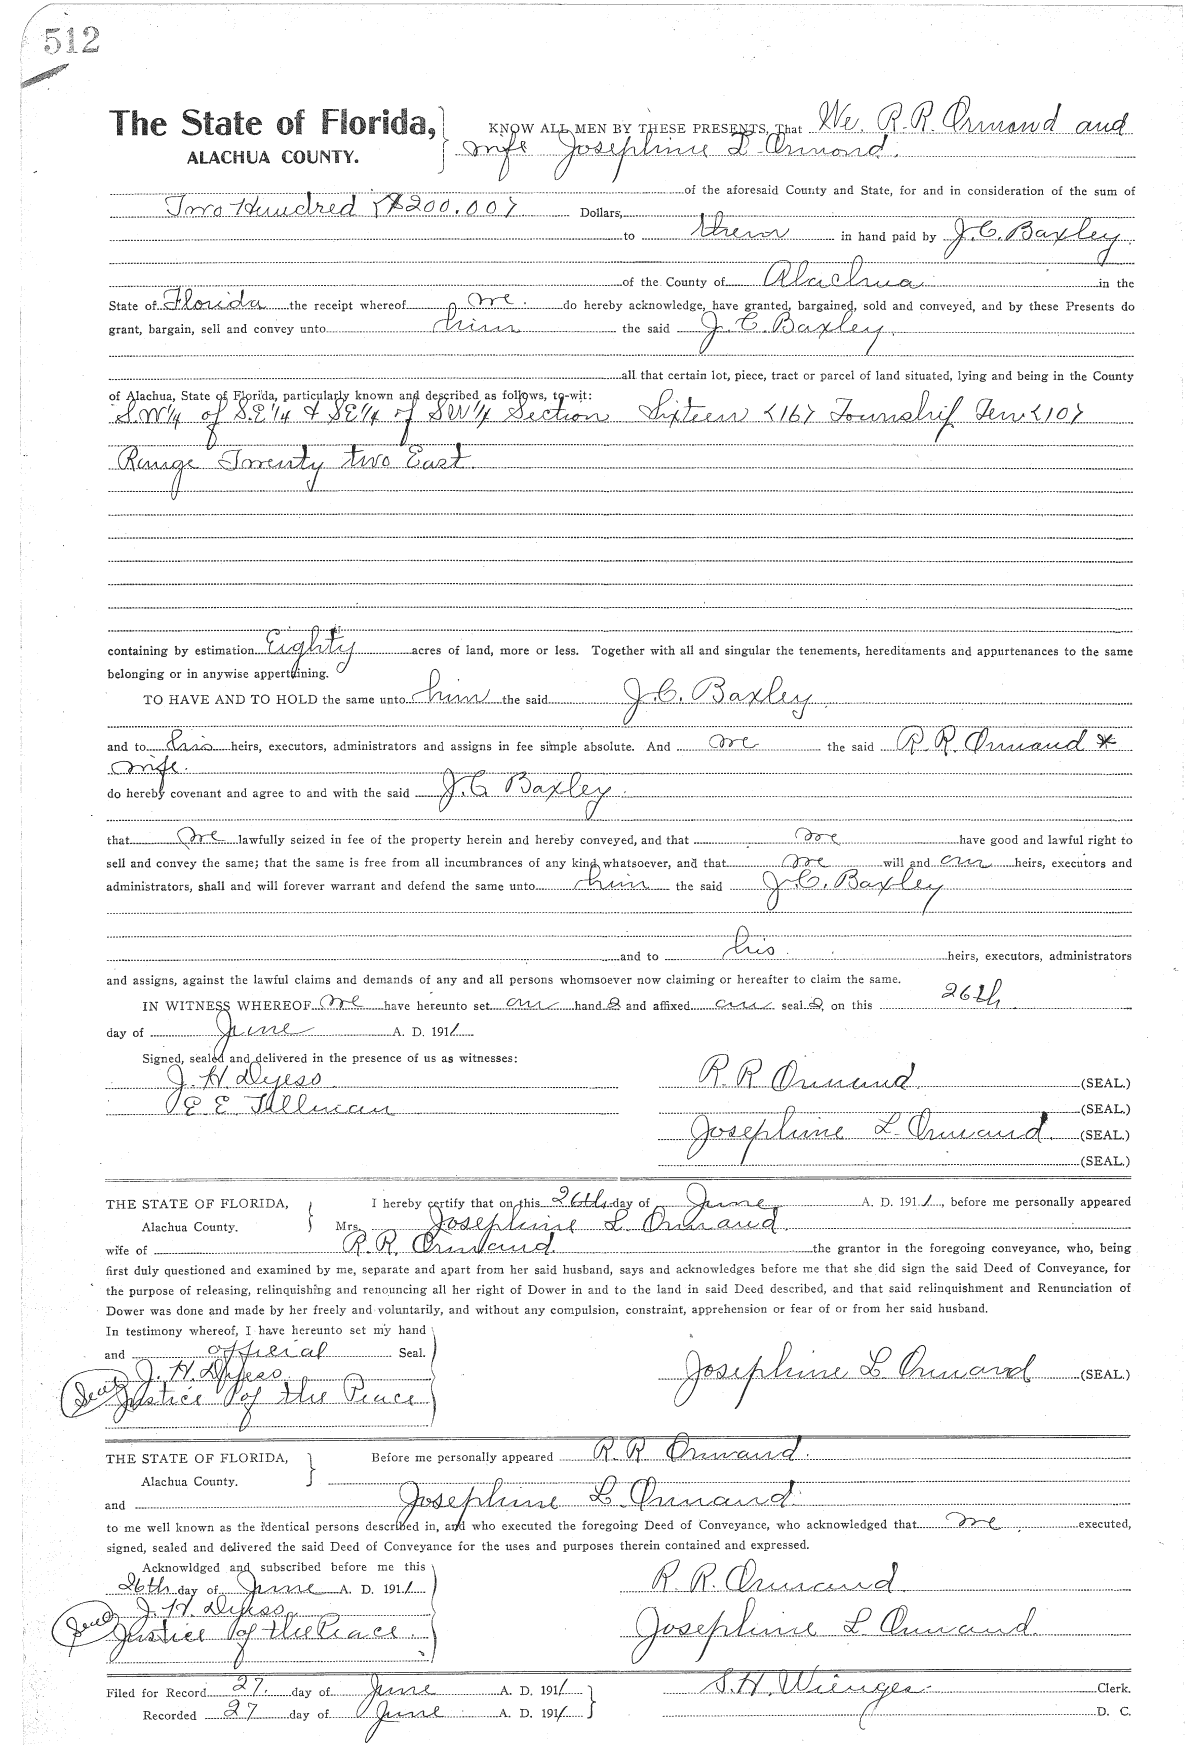 512
The State of Florida,
ALACHUA COUNTY.
KNOW ALL MEN BY THESE PRESENTS, That We, R.R. Ormond and
wife Josephine L Ormond.
of the aforesaid County and State, for and in consideration of the sum of
Two Hundred ($200.00) Dollars,
to them in hand paid by J.C. Baxley
of the County of Alachua in the
State of Florida the receipt whereof we do hereby acknowledge, have granted, bargained, sold and conveyed, and by these Presents do
grant, bargain, sell and convey unto him the said J. C. Baxley.
all that certain lot, piece, tract or parcel of land situated, lying and being in the County
of Alachua, State of Florida, particularly known and described as follows, to-wit:
S.W 1/4 of S.E 1/4 & SE 1/4 of SW 1/4 Section Sixteen <16> Township Ten <10>
Range Twenty two East
containing by estimation Eighty acres of land, more or less. Together with all and singular the tenements, hereditaments and appurtenances to the same
belonging or in anywise appertaining.
TO HAVE AND TO HOLD the same unto him the said J.C. Baxley
and to his heirs, executors, administrators and assigns in fee simple absolute. And we the said R. R. Ormond &
wife.
do hereby covenant and agree to and with the said J.C Baxley.
that we lawfully seized in fee of the property herein and hereby conveyed, and that we have good and lawful right to
sell and convey the same; that the same is free from all incumbrances of any kind whatsoever, and that we will and our heirs, executors and
administrators, shall and will forever warrant and defend the same unto him the said J.C. Baxley
and to his heirs, executors, administrators
and assigns, against the lawful claims and demands of any and all persons whomsoever now claiming or hereafter to claim the same.
IN WITNESS WHEREOF we have hereunto set our hand s and affixed our seal s, on this 26th
day of June A. D. 1911
Signed, sealed and delivered in the presence of us as witnesses:
J. H Dyess R. R Ormond (SEAL.)
E E Tillman (SEAL.)
Josephine L Ormond. (SEAL.)
(SEAL.)
THE STATE OF FLORIDA,
Alachua County.
I hereby certify that on this 26th day of June A. D. 1911, before me personally appeared
Mrs. Josephine L Ormond
wife of R.R. Ormond the grantor in the foregoing conveyance, who, being
first duly questioned and examined by me, separate and apart from her said husband, says and acknowledges before me that she did sign the said Deed of Conveyance, for
the purpose of releasing, relinquishing and renouncing all her right of Dower in and to the land in said Deed described, and that said relinquishment and Renunciation of
Dower was done and made by her freely and voluntarily, and without any compulsion, constraint, apprehension or fear of or from her said husband.
In testimony whereof, I have hereunto set my hand
and official Seal.
J. H. Dyess Josephine L Ormond (SEAL.)
Seal Justice of the Peace
THE STATE OF FLORIDA,
Alachua County.
Before me personally appeared R. R Ormond.
and Josephine L. Ormond.
to me well known as the identical persons described in, and who executed the foregoing Deed of Conveyance, who acknowledged that we executed,
signed, sealed and delivered the said Deed of Conveyance for the uses and purposes therein contained and expressed.
Acknowldged and subscribed before me this
26th day of June A. D. 1911 R. R. Ormond
J. H. Dyess
Seal Justice of the Peace. Josephine L Ormond.
Filed for Record 27. day of June A. D. 1911 S.H. Wienges. Clerk.
Recorded 27 day of June A. D. 1911 D. C.